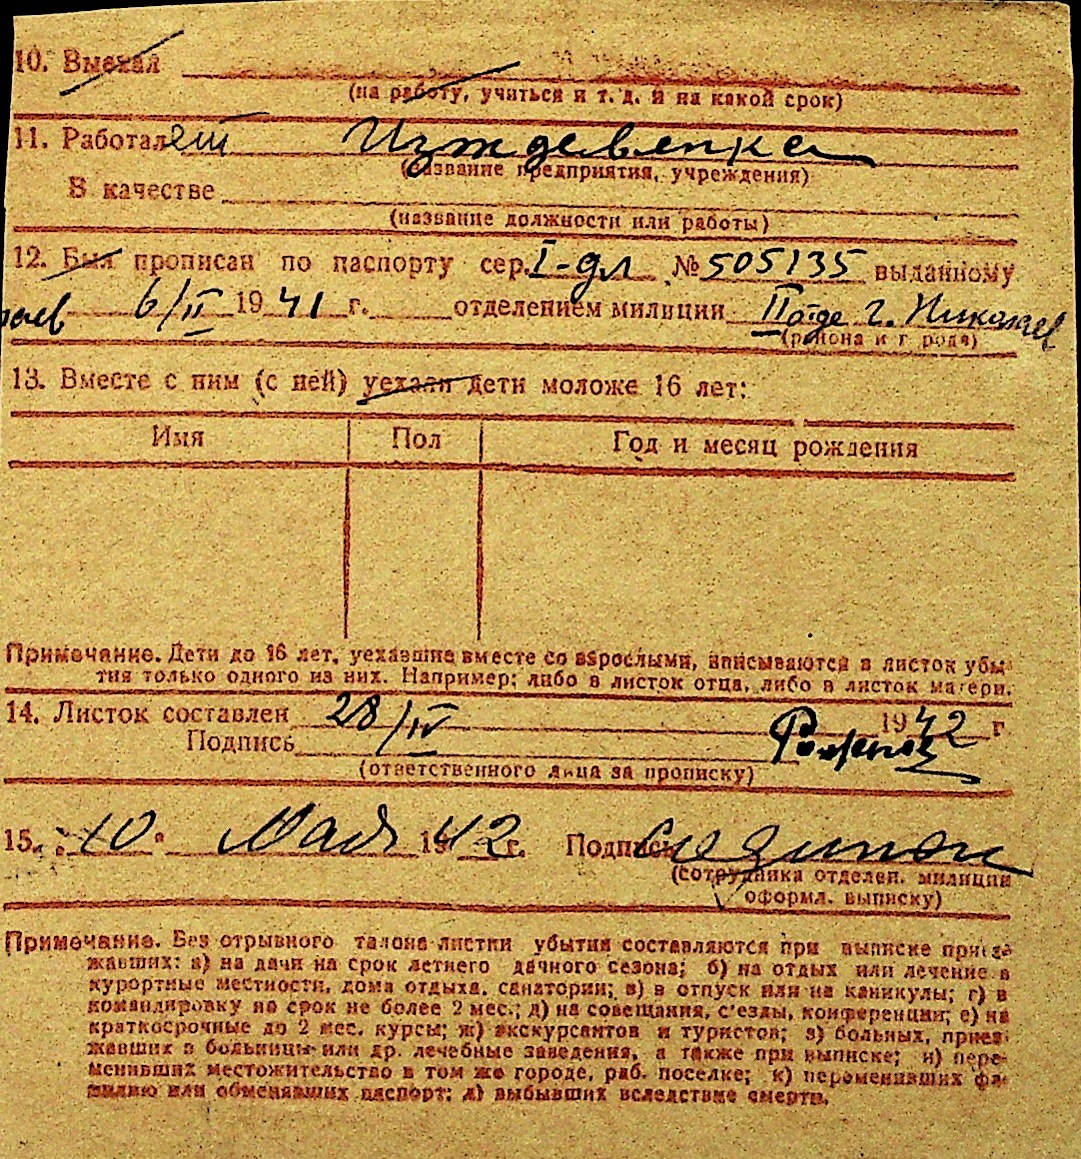 10. Выехал
(на работу, учиться и т. д. и на какой срок)
11. Работалет Иждевенка
(название предприятия, учреждения)
В качестве
(название должности или работы)
12. Был прописан по паспорту сер. I-дл № 505135 выданному
6/II 1941 г. отделением милиции II отде г. Николаев
(района и города)
13. Вместе с ним (с ней) уехали дети моложе 16 лет:
Имя Пол Год и месяц рождения
Примечание. Дети до 16 лет, уехавшие вместе со взрослыми, вписываются в листок убы-
тия только одного из них. Например: либо в листок отца, либо в листок матери.
14. Листок составлен 28/IV 1942 г.
Подпись
(ответственного лица за прописку)
15. "10" Мая 1942 г. Подпись
(сотрудника отделен. милиции
оформл. выписку)
Примечание. Без отрывного талона листки убытия составляются при выписке приез-
жавших: а) на дачи на срок летнего дачного сезона; б) на отдых или лечение в
курортные местности, дома отдыха, санатории; в) в отпуск или на каникулы; г) в
командировку на срок не более 2 мес.; д) на совещания, с'езды, конференции; е) на
краткосрочные до 2 мес. курсы; ж) экскурсантов и туристов; з) больных, приез-
жавших в больницы или др. лечебные заведения, а также при выписке; и) пере-
менивших местожительство в том же городе, раб. поселке; к) переменивших фа-
милию или обменявших паспорт; л) выбывших вследствие смерти.